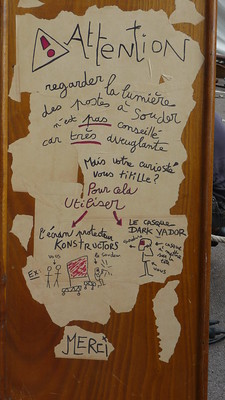 ! Attention
regarder la lumière
des postes à souder
n'est pas conseillé
car très aveuglante
Mais votre curiosité
vous titille?
Pour cela
Utiliser
l'écran protecteur
KONSTRUCTORS
LE CASQUE
DARK VADOR
Ex:
vous
le soudeur
vous
MERCI